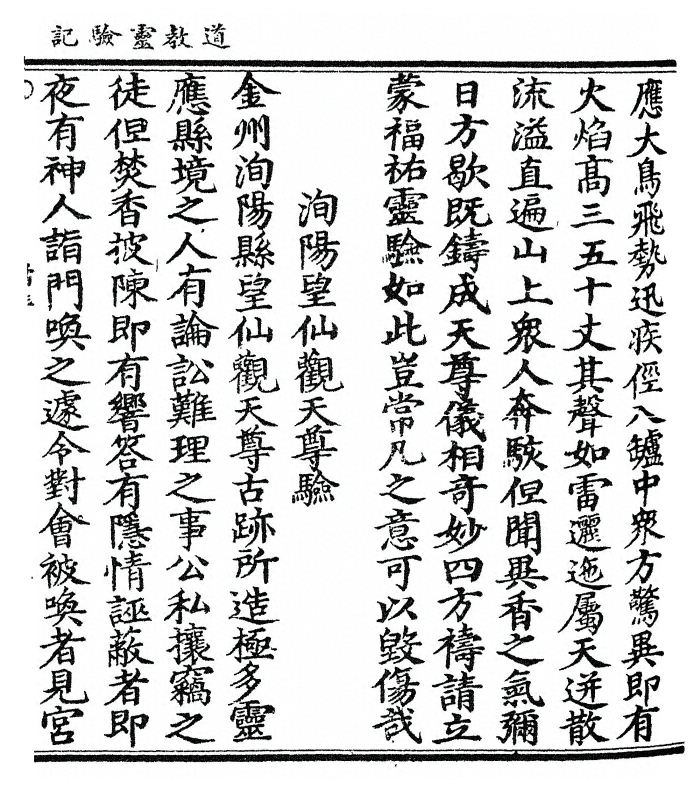 道教靈驗記
應大鳥飛勢迅疾徑入罏中衆方驚異即有
火焰髙三五十丈其聲如雷邐迤屬天迸散
流溢直遍山上衆人奔駭但聞異香之氣彌
日方歇既鑄成天尊儀相奇妙四方禱請立
蒙福祐靈驗如此豈常凡之意可以毀傷哉
洵陽望仙觀天尊驗
金州洵陽縣望仙觀天尊古跡所造極多靈
應縣境之人有論訟難理之事公私攘竊之
徒但焚香披陳即有響答有隱情誣蔽者即
夜有神人詣門喚之遽令對會被喚者見宮